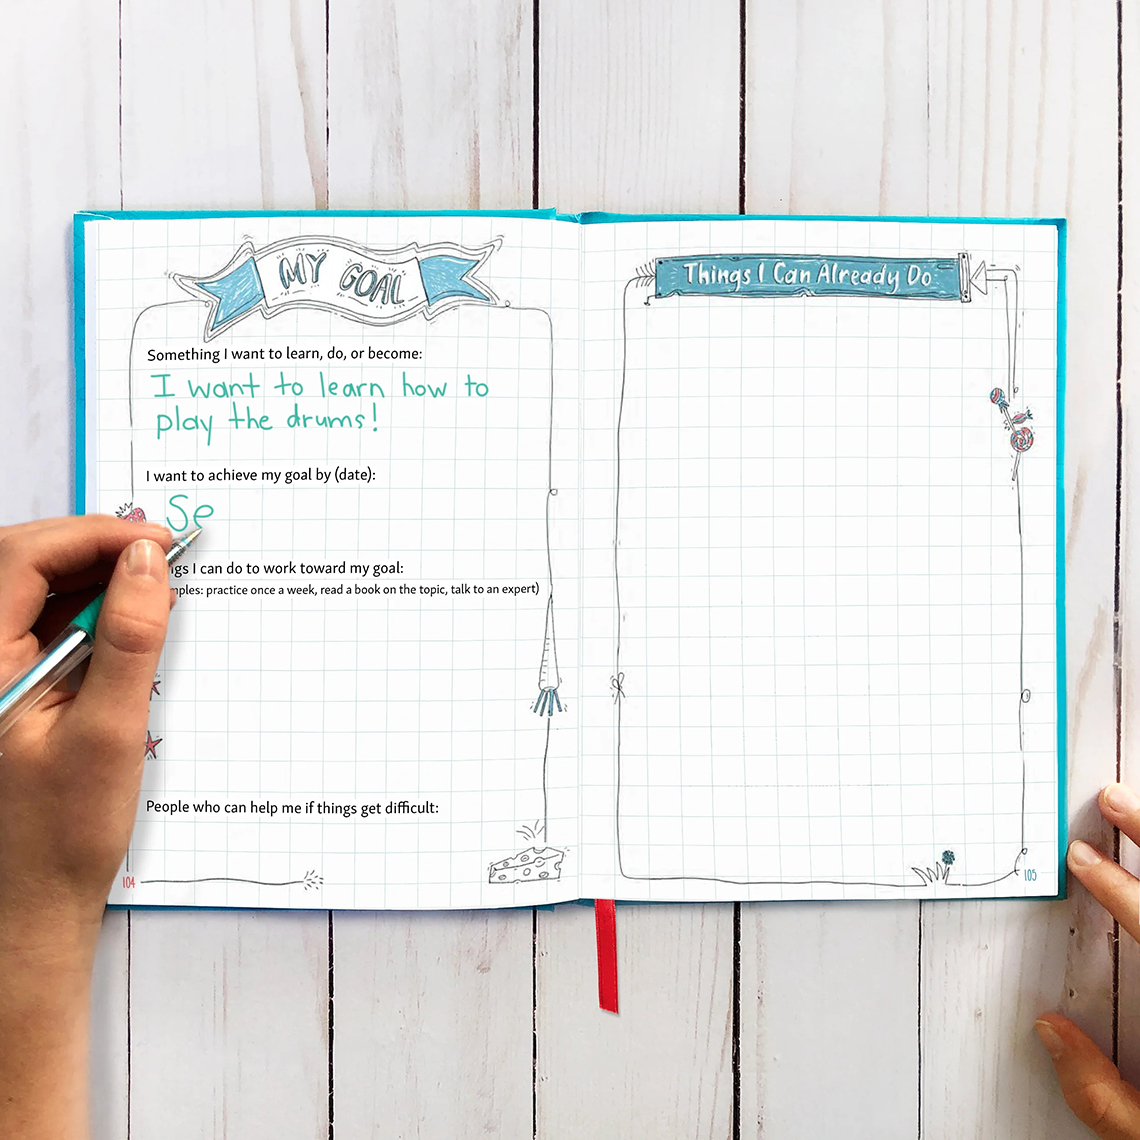 MY GOAL
Something I want to learn, do, or become:
I want to learn how to
play the drums!
I want to achieve my goal by (date):
Se
I can do to work toward my goal:
practice once a week, read a book on the topic, talk to an expert)
People who can help me if things get difficult:
104
Things I Can Already Do
105